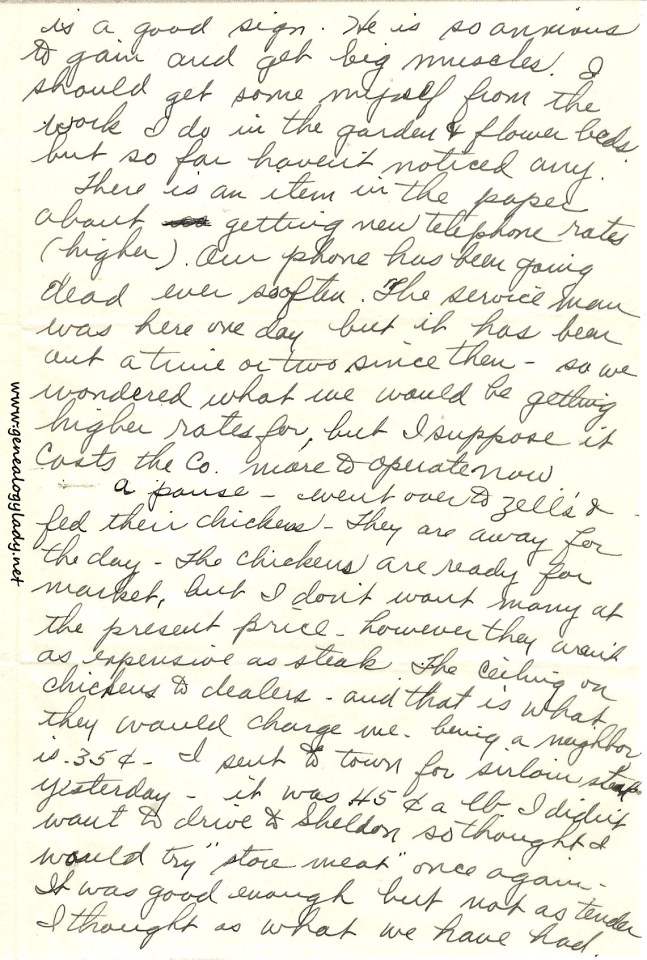 is a good sign. He is so anxious
to gain and get big muscles. I
should get some myself from the
work I do in the garden & flower beds
but so far haven't noticed any.
There is an item in the paper
about getting new telephone rates
(higher). Our phone has been going
dead ever so often. The service man
was here one day but it has been
out a time or two since then - so we
wondered what we would be getting
higher rates for, but I suppose it
costs the Co. more to operate now
a pause - went over to Zell's &
fed their chickens - They are away for
the day - The chickens are ready for
market, but I don't want many at
the present price - however they aren't
as expensive as steak The ceiling on
chickens to dealers - and that is what
they would charge me - being a neighbor
is .35¢ - I sent to town for sirloin steak
yesterday - it was 45¢ a lb I didn't
want to drive to Sheldon so thought I
would try "store meat" once again -
It was good enough but not as tender
I thought as what we have had.
www.genealogylady.net